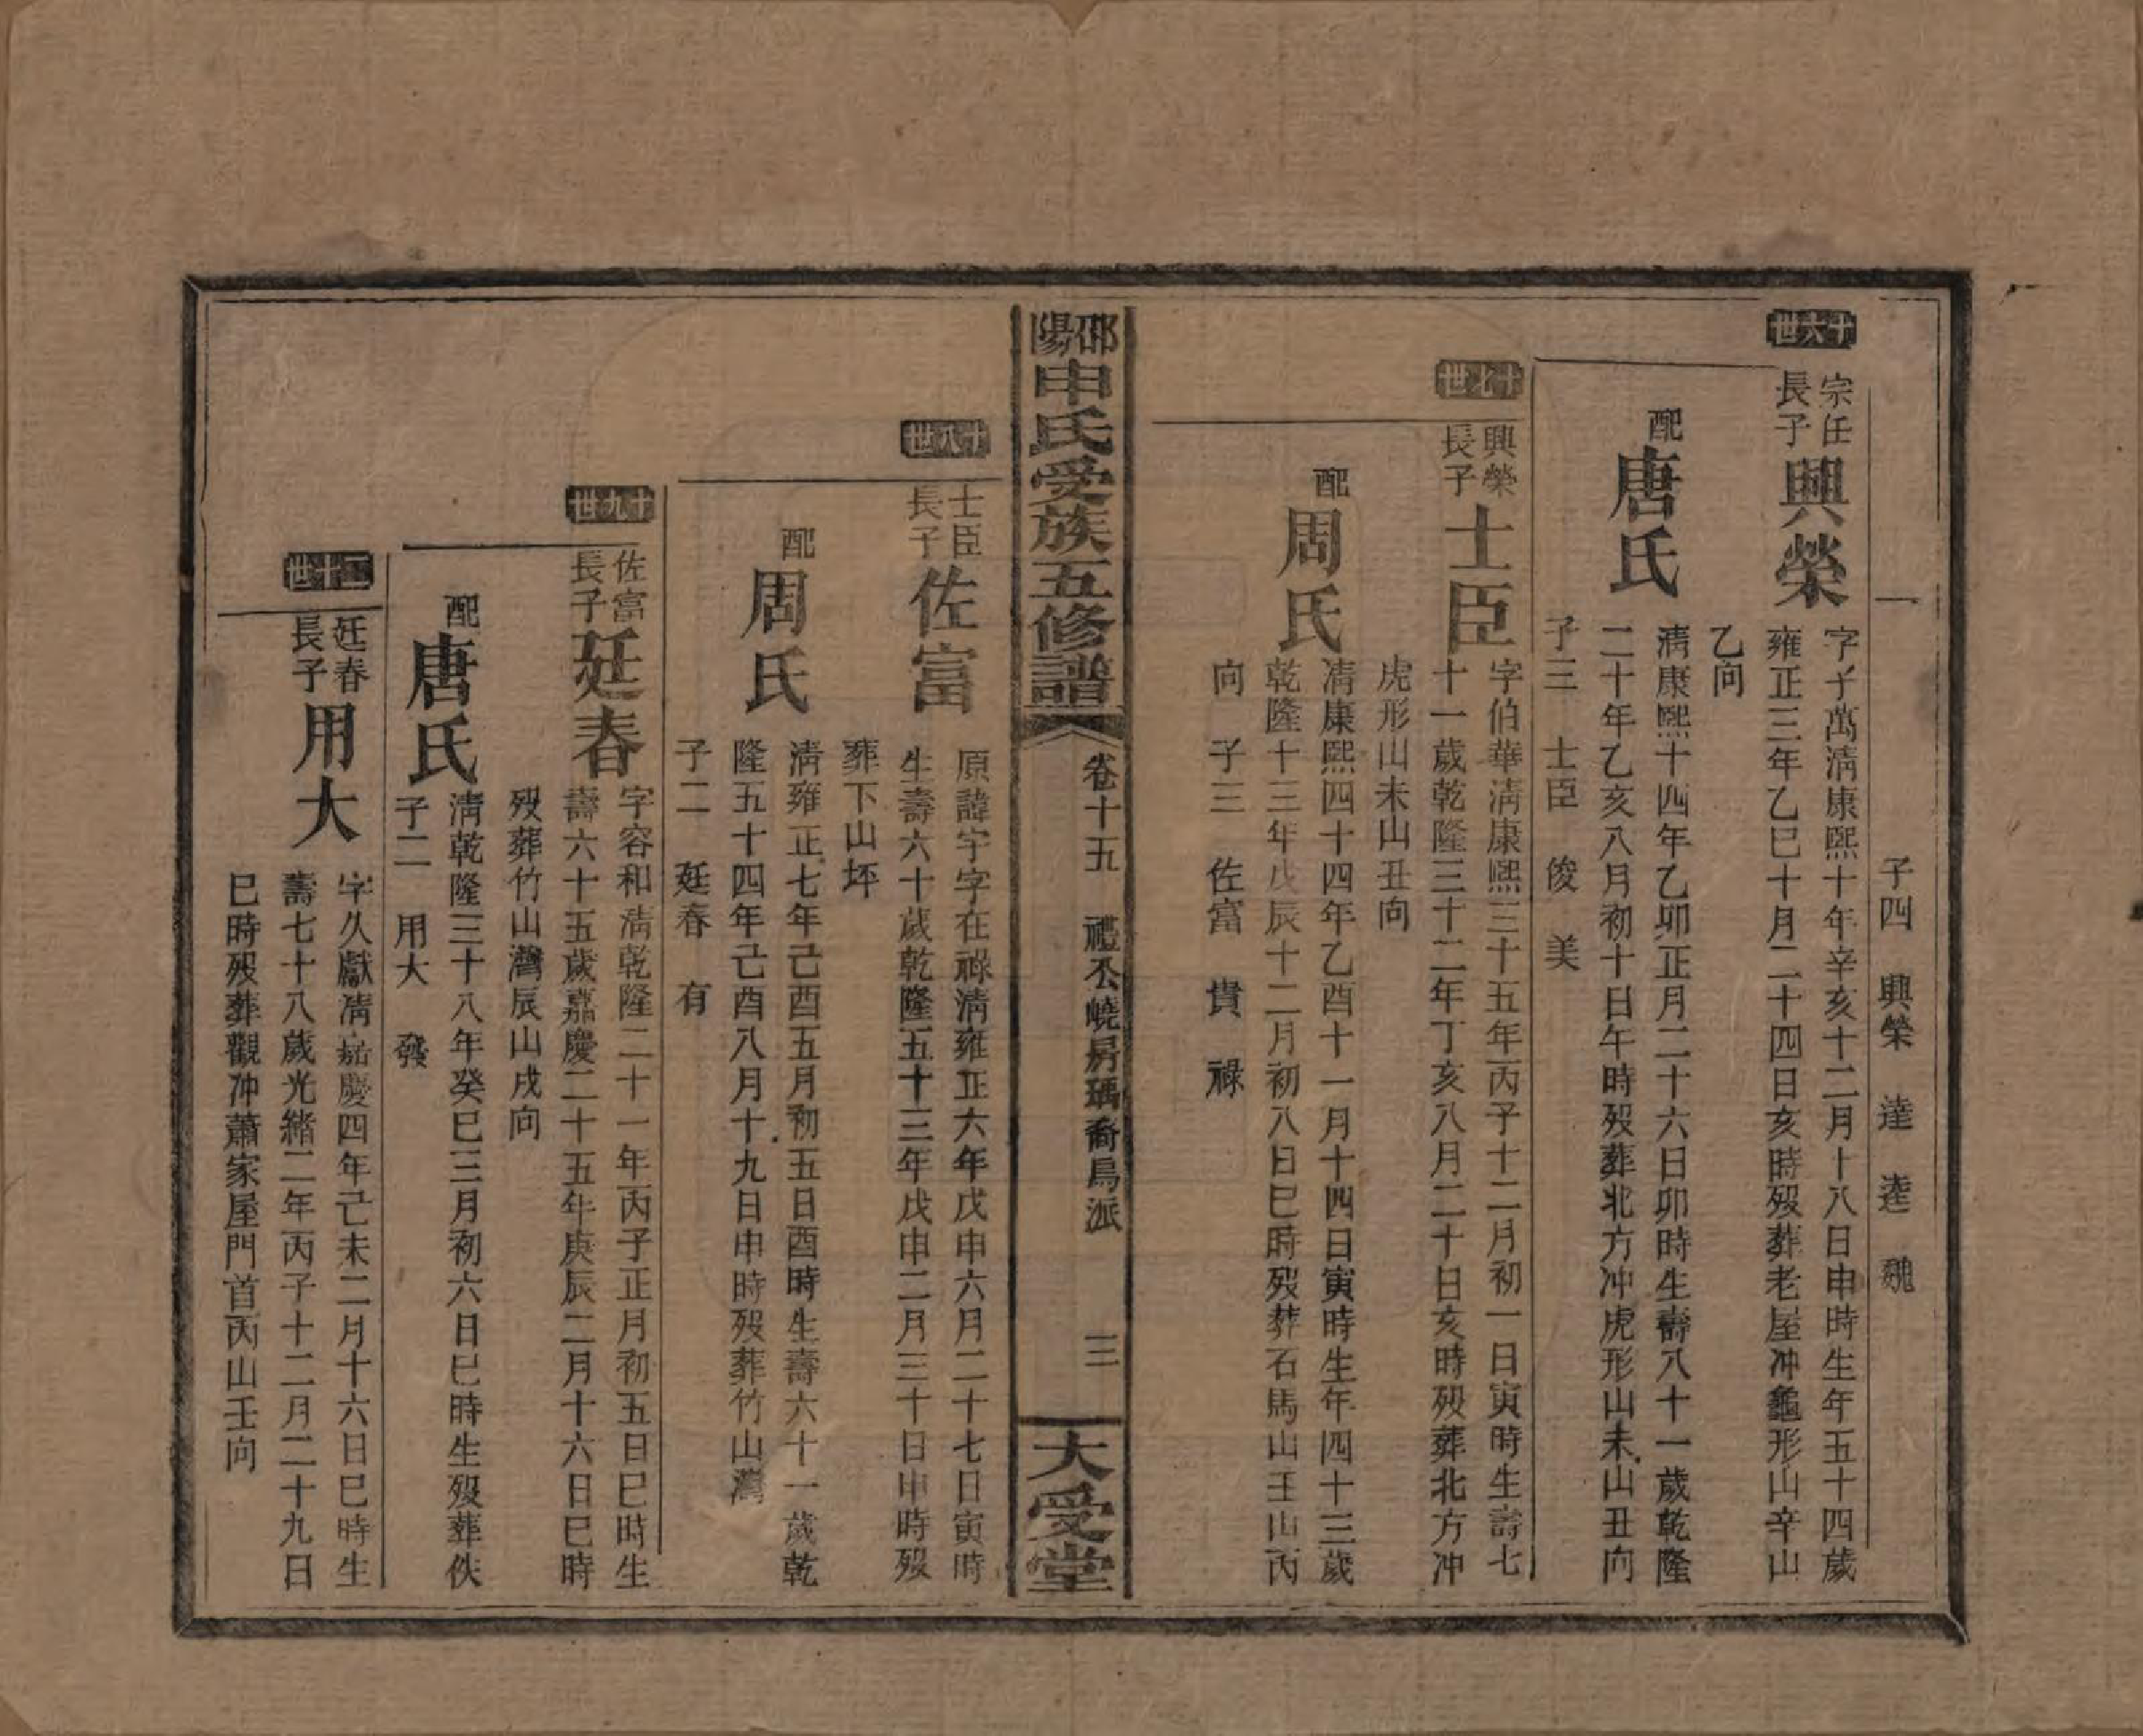 子四　興榮　達　逵　魏
十六世
宗任長子
興榮
字子萬淸康熙十年辛亥十二月十八日申時生年五十四歲
雍正三年乙巳十月二十四日亥時歿葬老屋冲龜形山辛山
乙向
配
唐氏
淸康熙十四年乙卯正月二十六日卯時生壽八十一歲乾隆
二十年乙亥八月初十日午時歿葬北方冲虎形山未山丑向
子三　士臣　俊　美
十七世
興榮長子
士臣
字伯華淸康熙三十五年丙子十二月初一日寅時生壽七
十一歲乾隆三十二年丁亥八月二十日亥時歿葬北方冲
虎形山未山丑向
配
周氏
淸康熙四十四年乙酉十一月十四日寅時生年四十三歲
乾隆十三年戊辰十二月初八日巳時歿葬石馬山壬山丙
向　子三　佐富　貴　祿
邵陽申氏受族五修譜
卷十五　禮丕嶢房瑀裔爲派　三
大受堂
十八世
士臣長子
佐富
原諱宇字在祿淸雍正六年戊申六月二十七日寅時
生壽六十歲乾隆五十三年戊申二月三十日申時歿
葬下山坪
配
周氏
淸雍正七年己酉五月初五日酉時生壽六十一歲乾
隆五十四年己酉八月十九日申時歿葬竹山灣
子二　廷春　有
十九世
佐富長子
廷春
字容和淸乾隆二十一年丙子正月初五日巳時生
壽六十五歲嘉慶二十五年庚辰二月十六日巳時
歿葬竹山灣辰山戌向
配
唐氏
淸乾隆三十八年癸巳三月初六日巳時生歿葬佚
子二　用大　發
二十世
廷春長子
用大
字久獻淸嘉慶四年己未二月十六日巳時生
壽七十八歲光緒二年丙子十二月二十九日
巳時歿葬觀冲蕭家屋門首丙山壬向